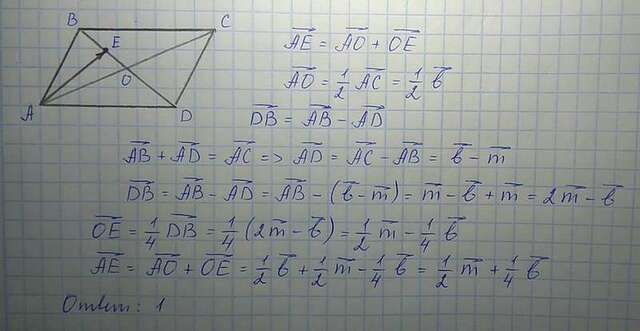 B C
E
O
A D
AE = AO + OE
AO = 1/2 AC = 1/2 b
DB = AB − AD
AB + AD = AC => AD = AC − AB = b − m
DB = AB − AD = AB − (b − m) = m − b + m = 2m − b
OE = 1/4 DB = 1/4 (2m − b) = 1/2 m − 1/4 b
AE = AO + OE = 1/2 b + 1/2 m − 1/4 b = 1/2 m + 1/4 b
Ответ: 1